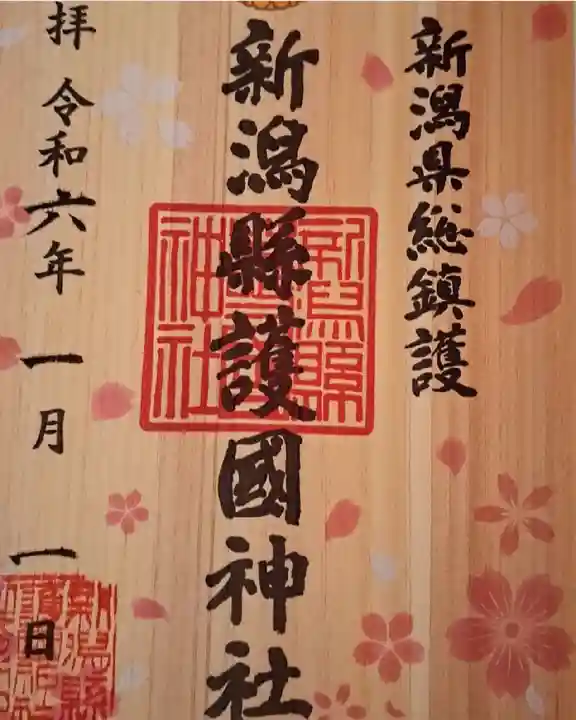 新潟県総鎮護
新潟縣護國神社
新潟縣
神社
拝 令和六年 一月 一日